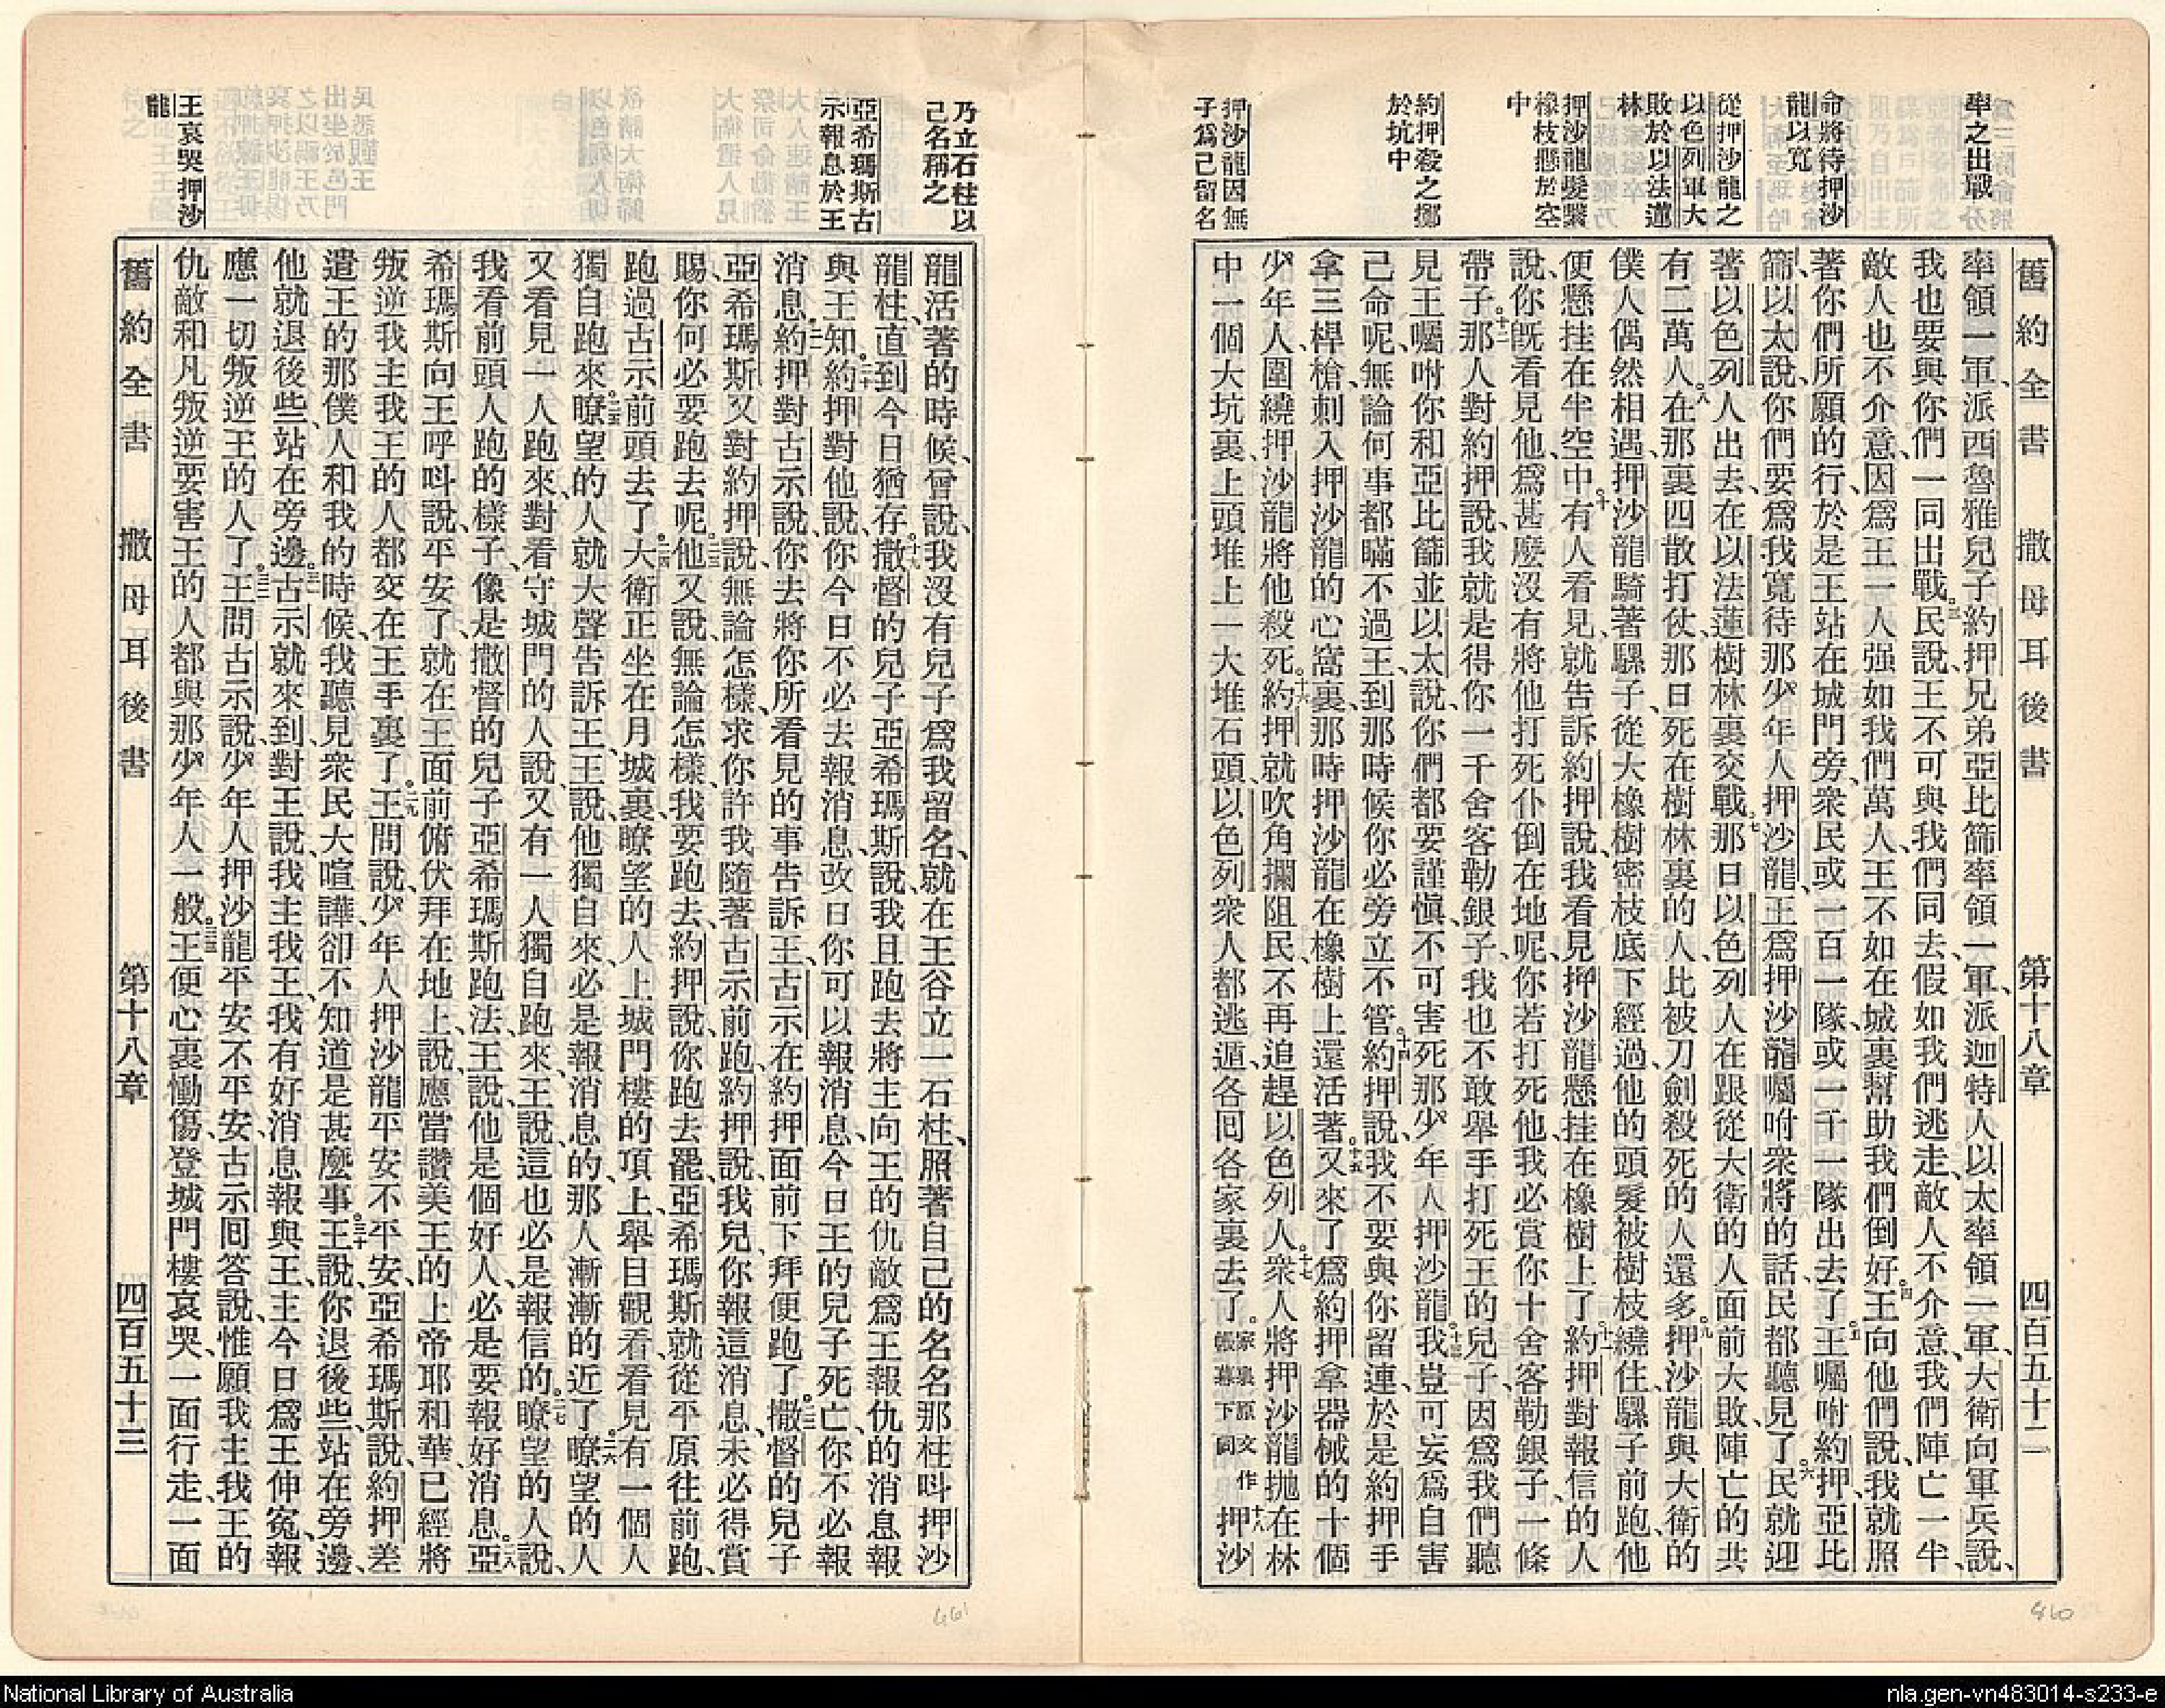 率之出戰
命將待押沙
龍以寬
從押沙龍之
以色列軍大
敗於以法蓮
林
押沙龍髮縈
橡枝懸於空
中
約押殺之擲
於坑中
押沙龍因無
子爲己留名
舊約全書 撒母耳後書 第十八章 四百五十二
率領一軍、派西魯雅兒子約押兄弟亞比篩率領一軍、派迦特人以太率領一軍、大衛向軍兵說、
我也要與你們一同出戰。三民說、王不可與我們同去、假如我們逃走、敵人不介意、我們陣亡一半、
敵人也不介意、因爲王一人强如我們萬人、王不如在城裏幫助我們倒好。四王向他們說、我就照
著你們所願的行、於是王站在城門旁、衆民或一百一隊、或一千一隊出去了。五王囑咐約押、亞比
篩、以太說、你們要爲我寬待那少年人押沙龍、王爲押沙龍囑咐衆將的話、民都聽見了。六民就迎
著以色列人出去、在以法蓮樹林裏交戰。七那日以色列人在跟從大衛的人面前大敗、陣亡的共
有二萬人。八在那裏四散打仗、那日死在樹林裏的人、比被刀劍殺死的人還多。九押沙龍與大衛的
僕人偶然相遇、押沙龍騎著騾子、從大橡樹密枝底下經過、他的頭髮被樹枝繞住、騾子前跑、他
便懸挂在半空中。十有人看見、就告訴約押說、我看見押沙龍懸挂在橡樹上了。十一約押對報信的人
說、你旣看見他、爲甚麼沒有將他打死仆倒在地呢、你若打死他、我必賞你十舍客勒銀子、一條
帶子。十二那人對約押說、我就是得你一千舍客勒銀子、我也不敢舉手打死王的兒子、因爲我們聽
見王囑咐你和亞比篩並以太說、你們都要謹愼、不可害死那少年人押沙龍。十三我豈可妄爲自害
己命呢、無論何事都瞞不過王、到那時候你必旁立不管。十四約押說、我不要與你留連、於是約押手
拿三桿槍、刺入押沙龍的心窩裏、那時押沙龍在橡樹上還活著。十五又來了爲約押拿器械的十個
少年人、圍繞押沙龍、將他殺死。十六約押就吹角攔阻民、不再追趕以色列人。十七衆人將押沙龍拋在林
中一個大坑裏、上頭堆上一大堆石頭、以色列衆人都逃遁、各囘各家裏去了。家裏原文作帳幕下同十八押沙
乃立石柱以
己名稱之
亞希瑪斯古
示報息於王
王哀哭押沙
龍
龍活著的時候、曾說、我沒有兒子爲我留名、就在王谷立一石柱、照著自己的名名那柱叫押沙
龍柱、直到今日猶存。十九撒督的兒子亞希瑪斯說、我且跑去將主向王的仇敵爲王報仇的消息報
與王知。二十約押對他說、你今日不必去報消息、改日你可以報消息、今日王的兒子死亡、你不必報
消息。二一約押對古示說、你去將你所看見的事告訴王、古示在約押面前下拜、便跑了。二二撒督的兒子
亞希瑪斯又對約押說、無論怎樣、求你許我隨著古示前跑、約押說、我兒、你報這消息、未必得賞
賜、你何必要跑去呢。二三他又說、無論怎樣、我要跑去、約押說、你跑去罷、亞希瑪斯就從平原往前跑、
跑過古示前頭去了。二四大衛正坐在月城裏、瞭望的人上城門樓的頂上、舉目觀看、看見有一個人
獨自跑來。二五瞭望的人就大聲告訴王、王說、他獨自來、必是報消息的、那人漸漸的近了。二六瞭望的人
又看見一人跑來、對看守城門的人說、又有一人獨自跑來、王說、這也必是報信的。二七瞭望的人說、
我看前頭人跑的樣子、像是撒督的兒子亞希瑪斯跑法、王說、他是個好人、必是要報好消息。二八亞
希瑪斯向王呼叫說、平安了、就在王面前俯伏拜在地上、說、應當讚美王的上帝耶和華、已經將
叛逆我主我王的人都交在王手裏了。二九王問說、少年人押沙龍平安不平安、亞希瑪斯說、約押差
遣王的那僕人和我的時候、我聽見衆民大喧譁、卻不知道是甚麼事。三十王說、你退後些、站在旁邊、
他就退後些、站在旁邊。三一古示就來到、對王說、我主我王、我有好消息報與王、主今日爲王伸冤、報
應一切叛逆王的人了。三二王問古示說、少年人押沙龍平安不平安、古示囘答說、惟願我主我王的
仇敵、和凡叛逆要害王的人、都與那少年人一般。三三王便心裏慟傷、登城門樓哀哭、一面行走、一面
舊約全書 撒母耳後書 第十八章 四百五十三
460
461
National Library of Australia
nla.gen-vn483014-s233-e